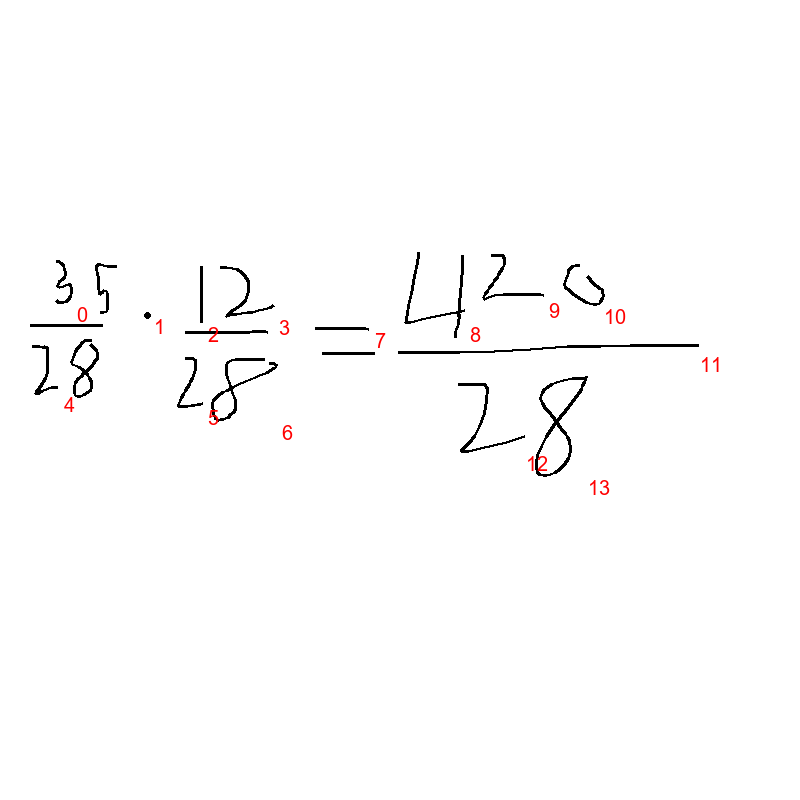 35/28 · 12/28 = 420/28
0 1 2 3 4 5 6 7 8 9 10 11 12 13